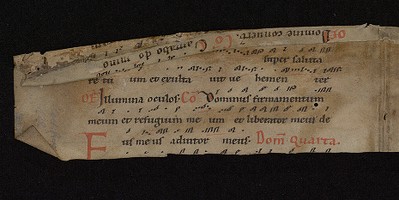 Co Cantabo domino
super saluta
re tu um et exulta uit ue hemen ter
OF Illumina oculos. Co Dominus firmamentum
meum et refugium me um et liberator meus de
us meus adiutor meus. Dom̄ quarta.